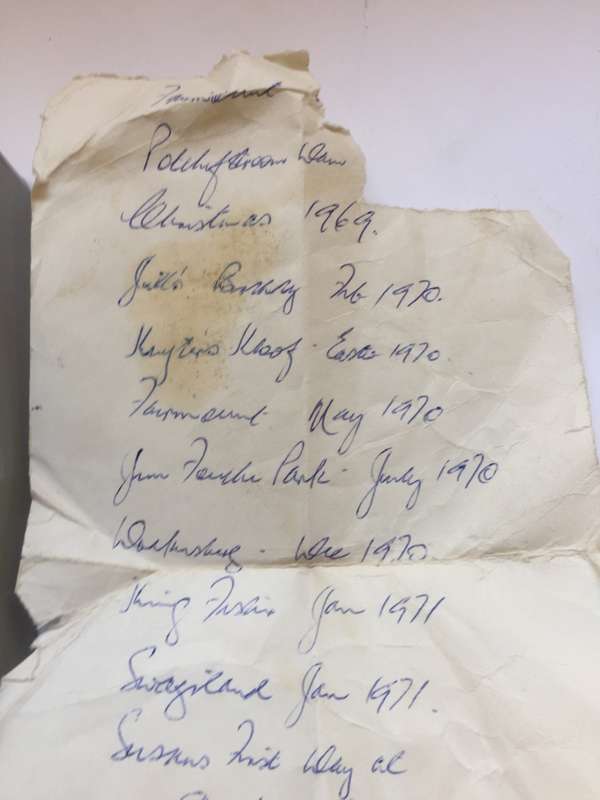 Fairmount
Potchefstroom Dam
Christmas 1969.
Jill's Birthday Feb 1970.
Kloof - Easter 1970.
Fairmount May 1970
Jim Fouche Park - July 1970
Dec 1970.
King Fisher Jan 1971
Swaziland Jan 1971.
Susans First Day at